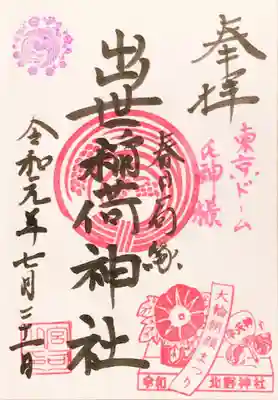 奉拝
東京ドーム
氏神様
春日局縁
出世稲荷神社
令和元年七月二十一日
大輪朝顔まつり
令和
北野神社